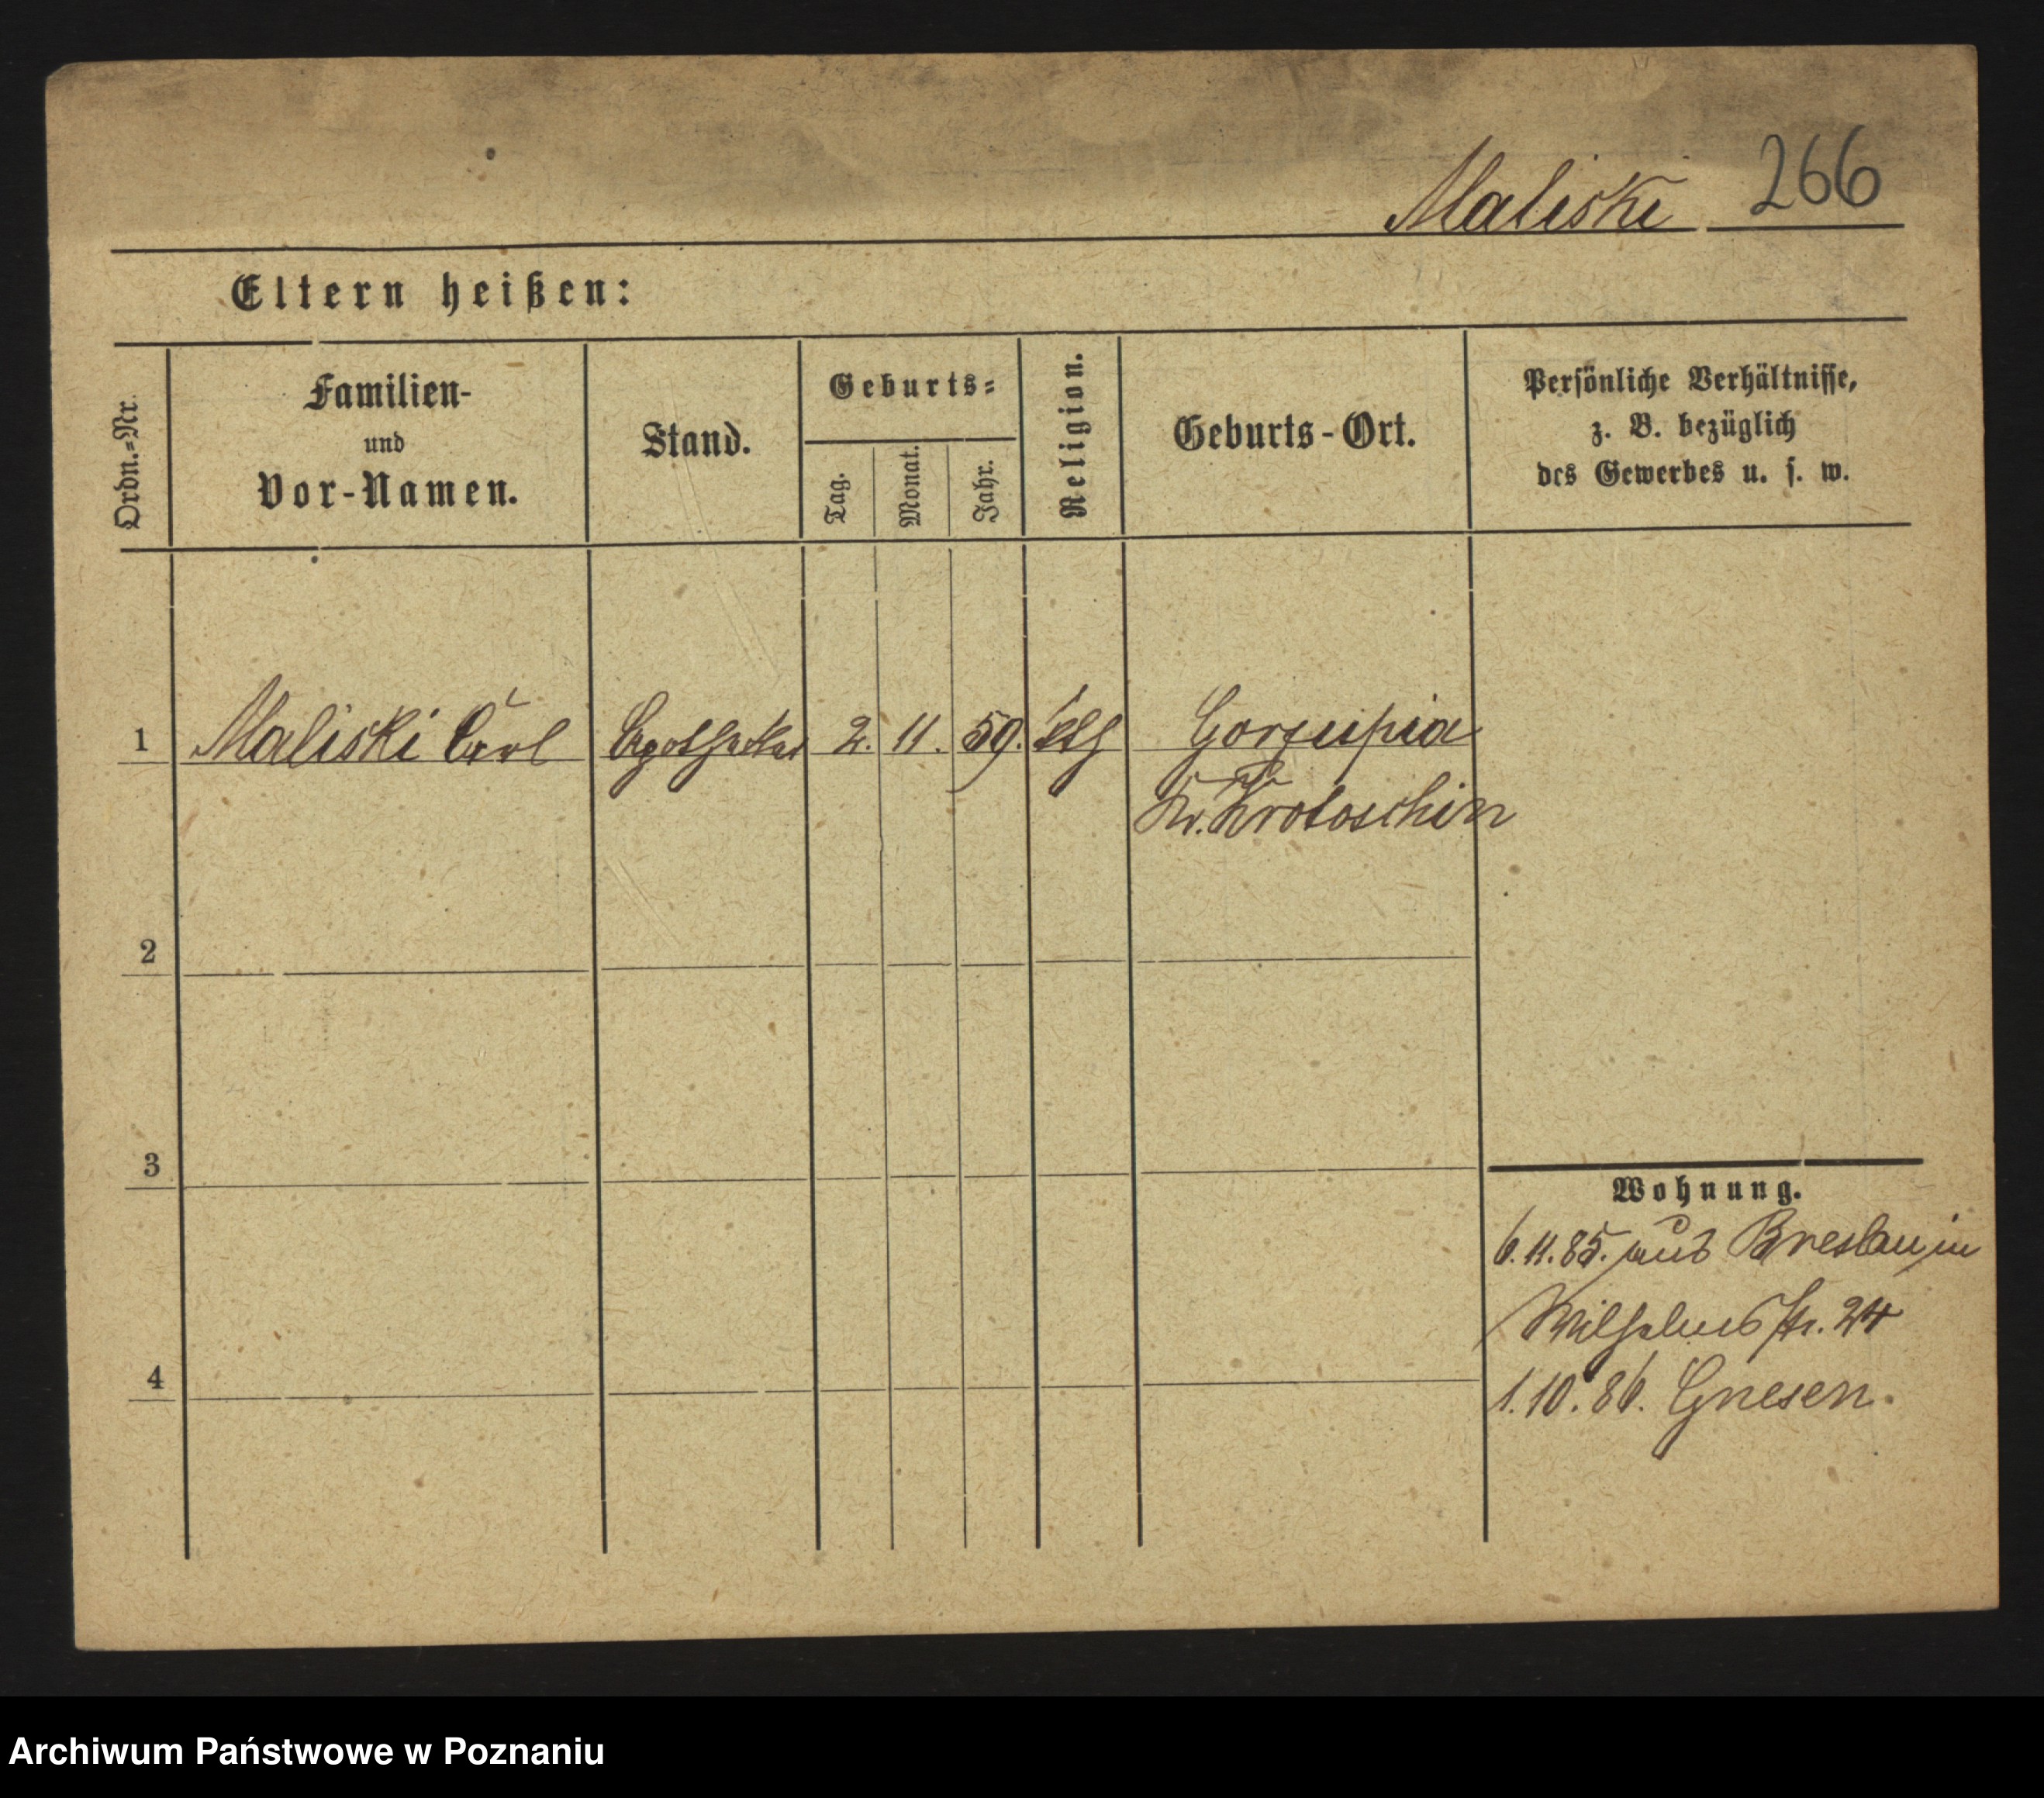 Maliski 266
Eltern heißen:
Ordn.-Nr.
Familien-
und
Vor-Namen.
Stand.
Geburts-
Tag.
Monat.
Jahr.
Religion.
Geburts-Ort.
Persönliche Verhältnisse,
z. B. bezüglich
des Gewerbes u. s. w.
1 Maliski Carl Apotheker 2. 11. 59. kth Gorzupia
Kr. Krotoschin
2
3
4
Wohnung.
6.11.85. aus Breslau in
Wilhelmsstr. 24
1.10.86. Gnesen.
Archiwum Państwowe w Poznaniu